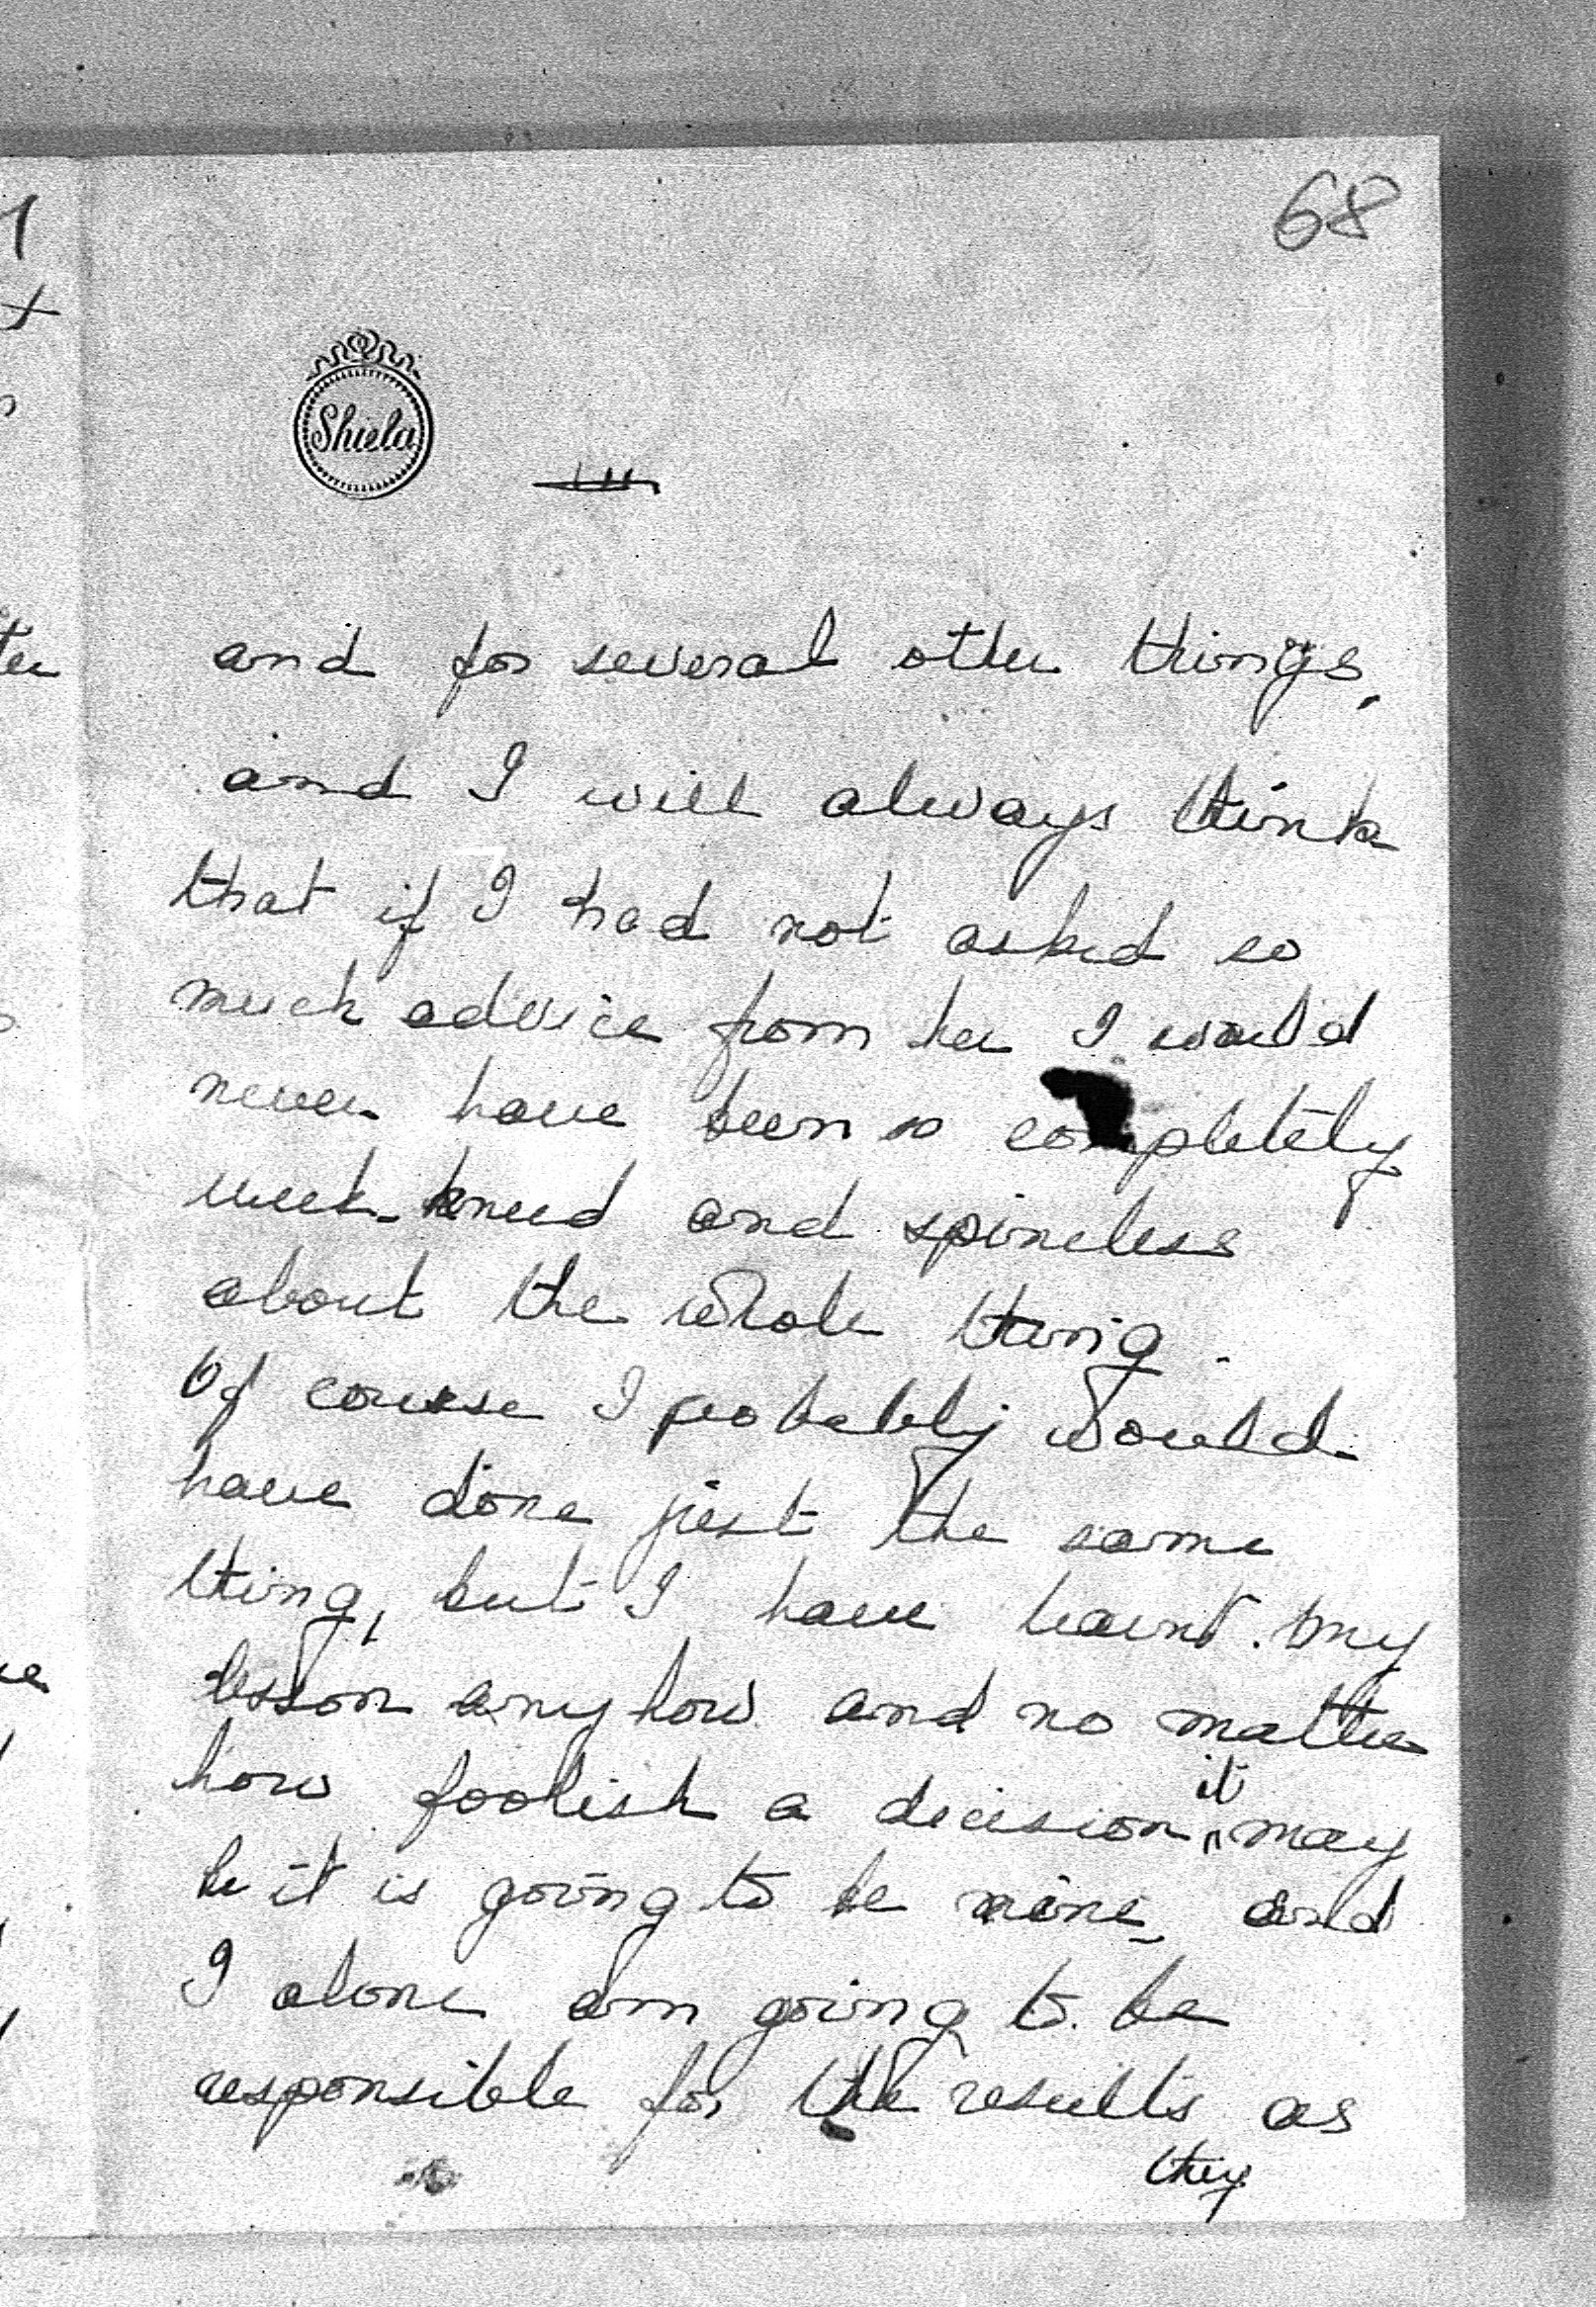 68
Shiela
III
and for several other things,
and I will always think
that if I had not asked so
much advice from her I would
never have been so completely
week-kneed and spineless
about the whole thing.
Of course I probably would
have done just the same
thing, but I have learnt my
lesson anyhow and no matter
how foolish a decision it may
be it is going to be mine, and
I alone am going to be
responsible for the results as
they